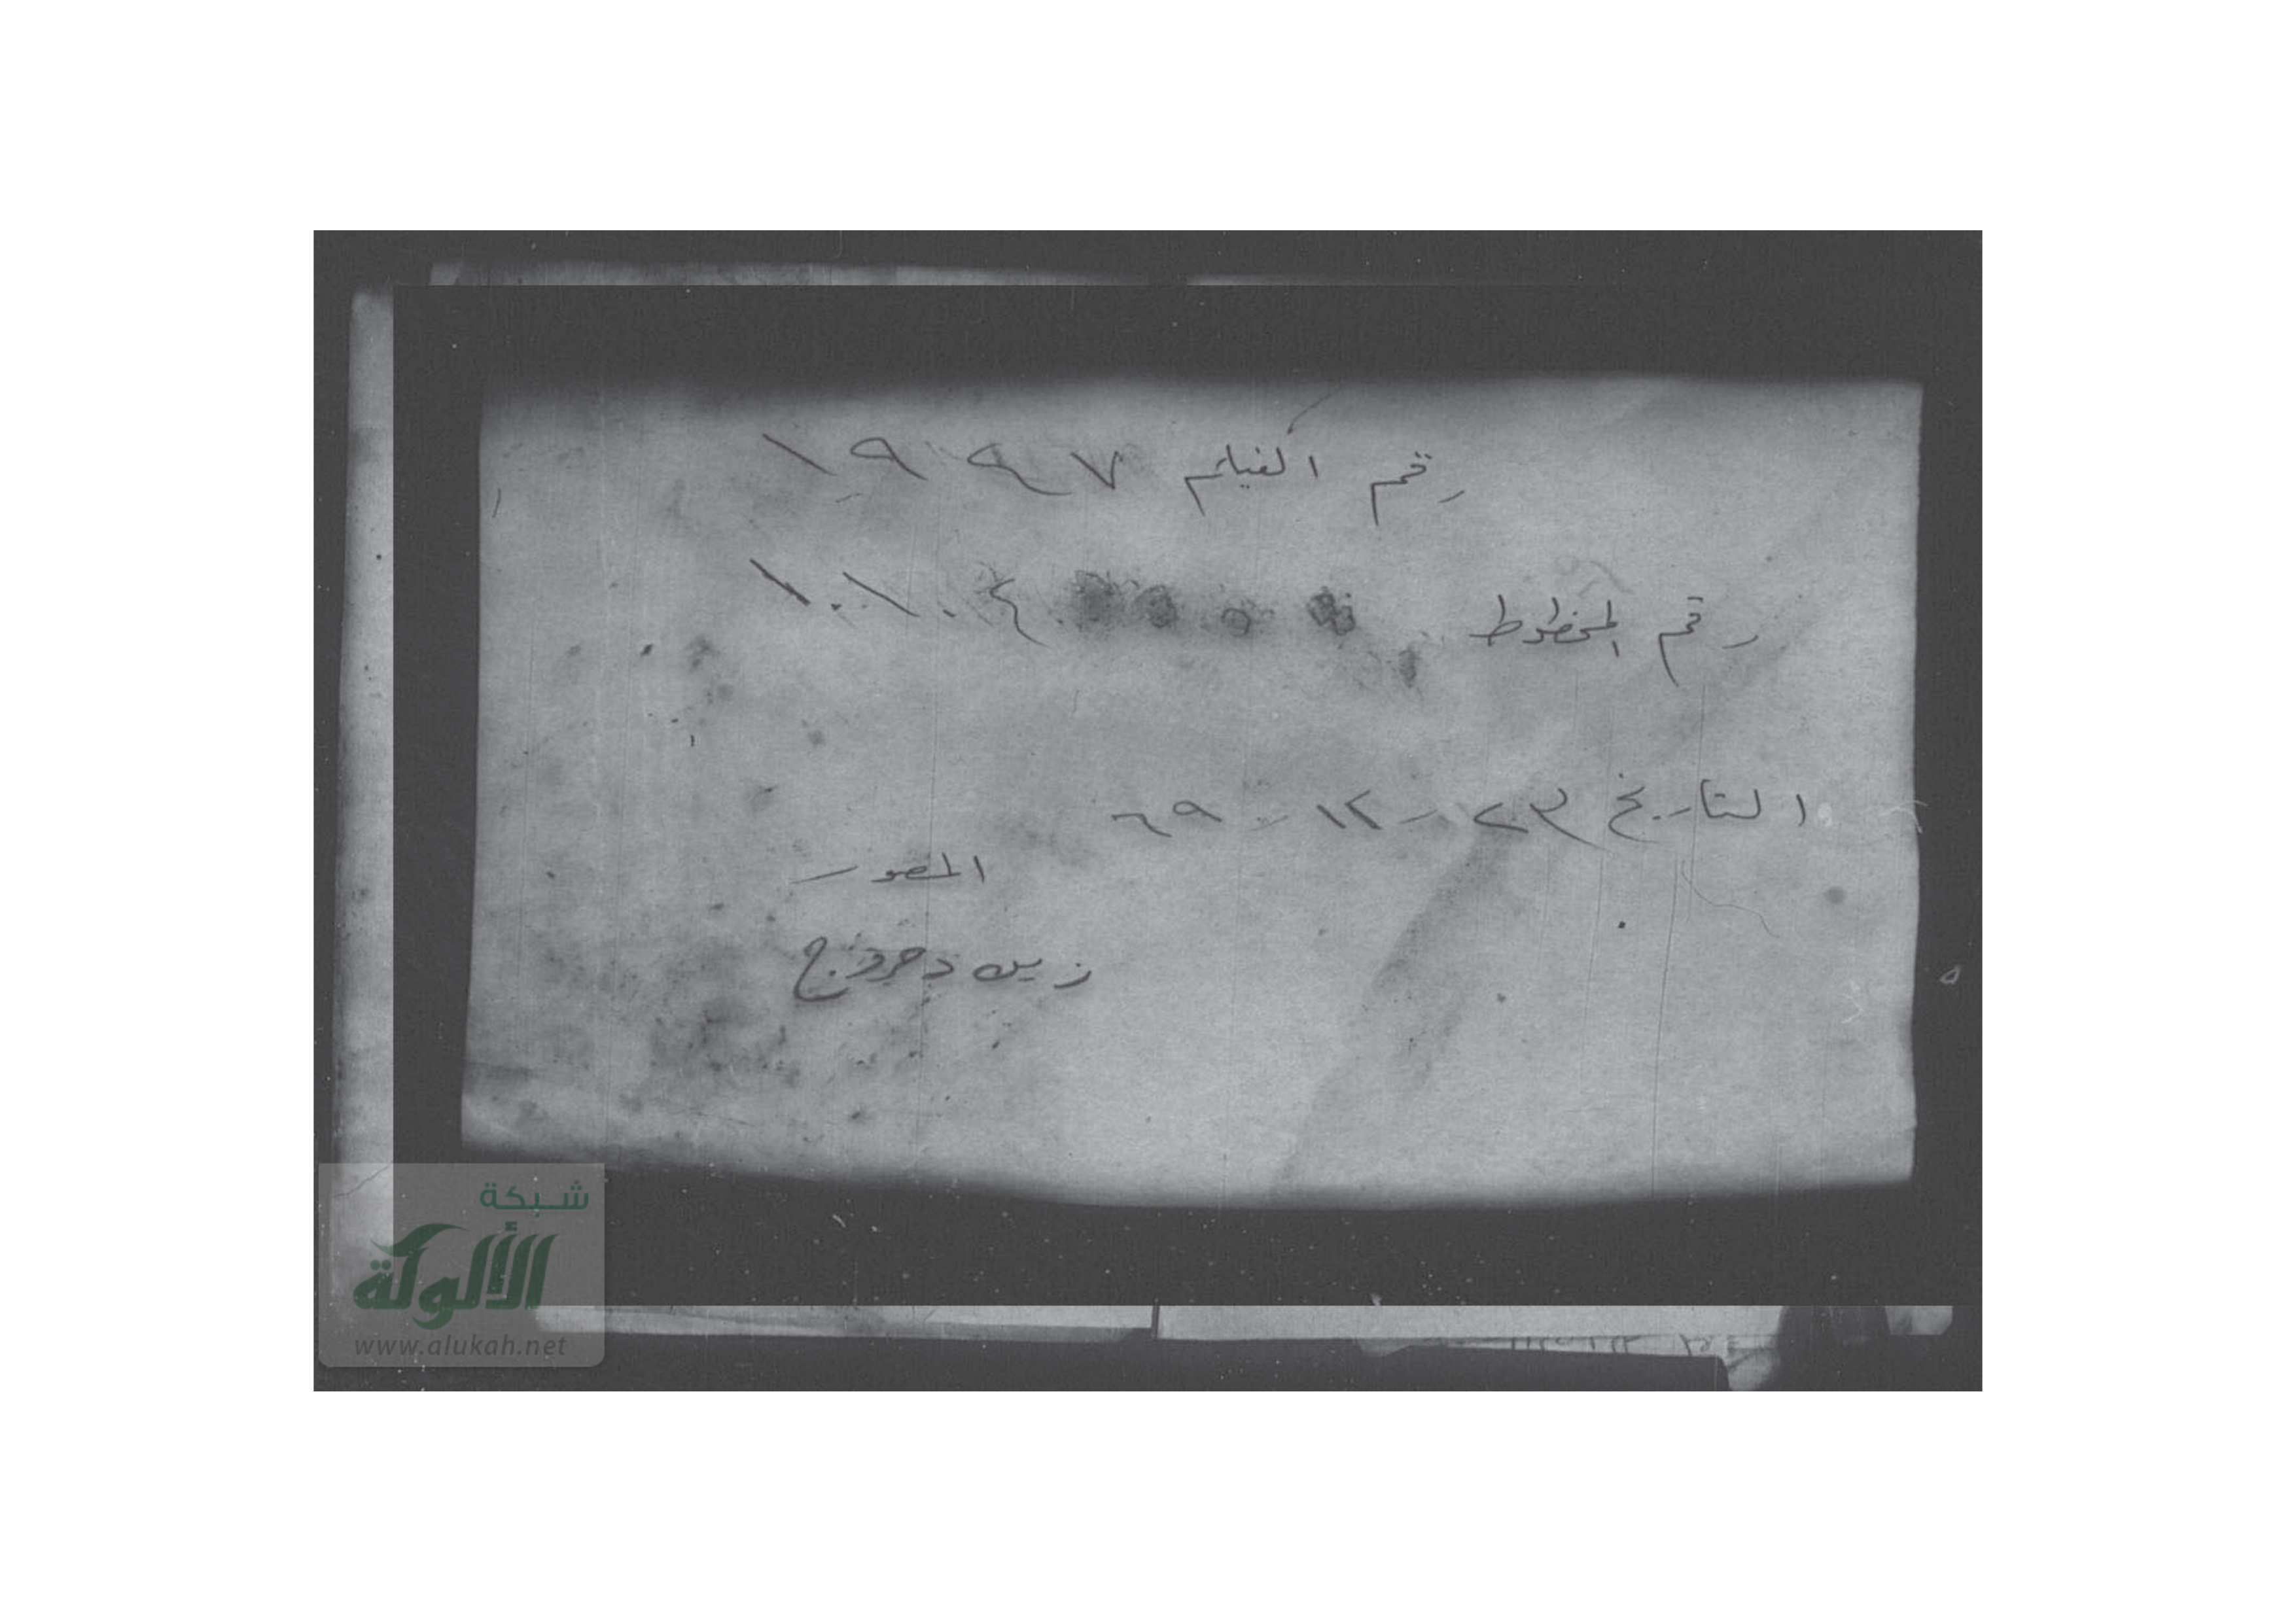 رقم الفيلم ١٩٤٧
رقم المخطوط ١٠١٠٤
التاريخ ٢٣-١٢-٦٩
المصور
زين دحروج
شبكة
الألوكة
www.alukah.net